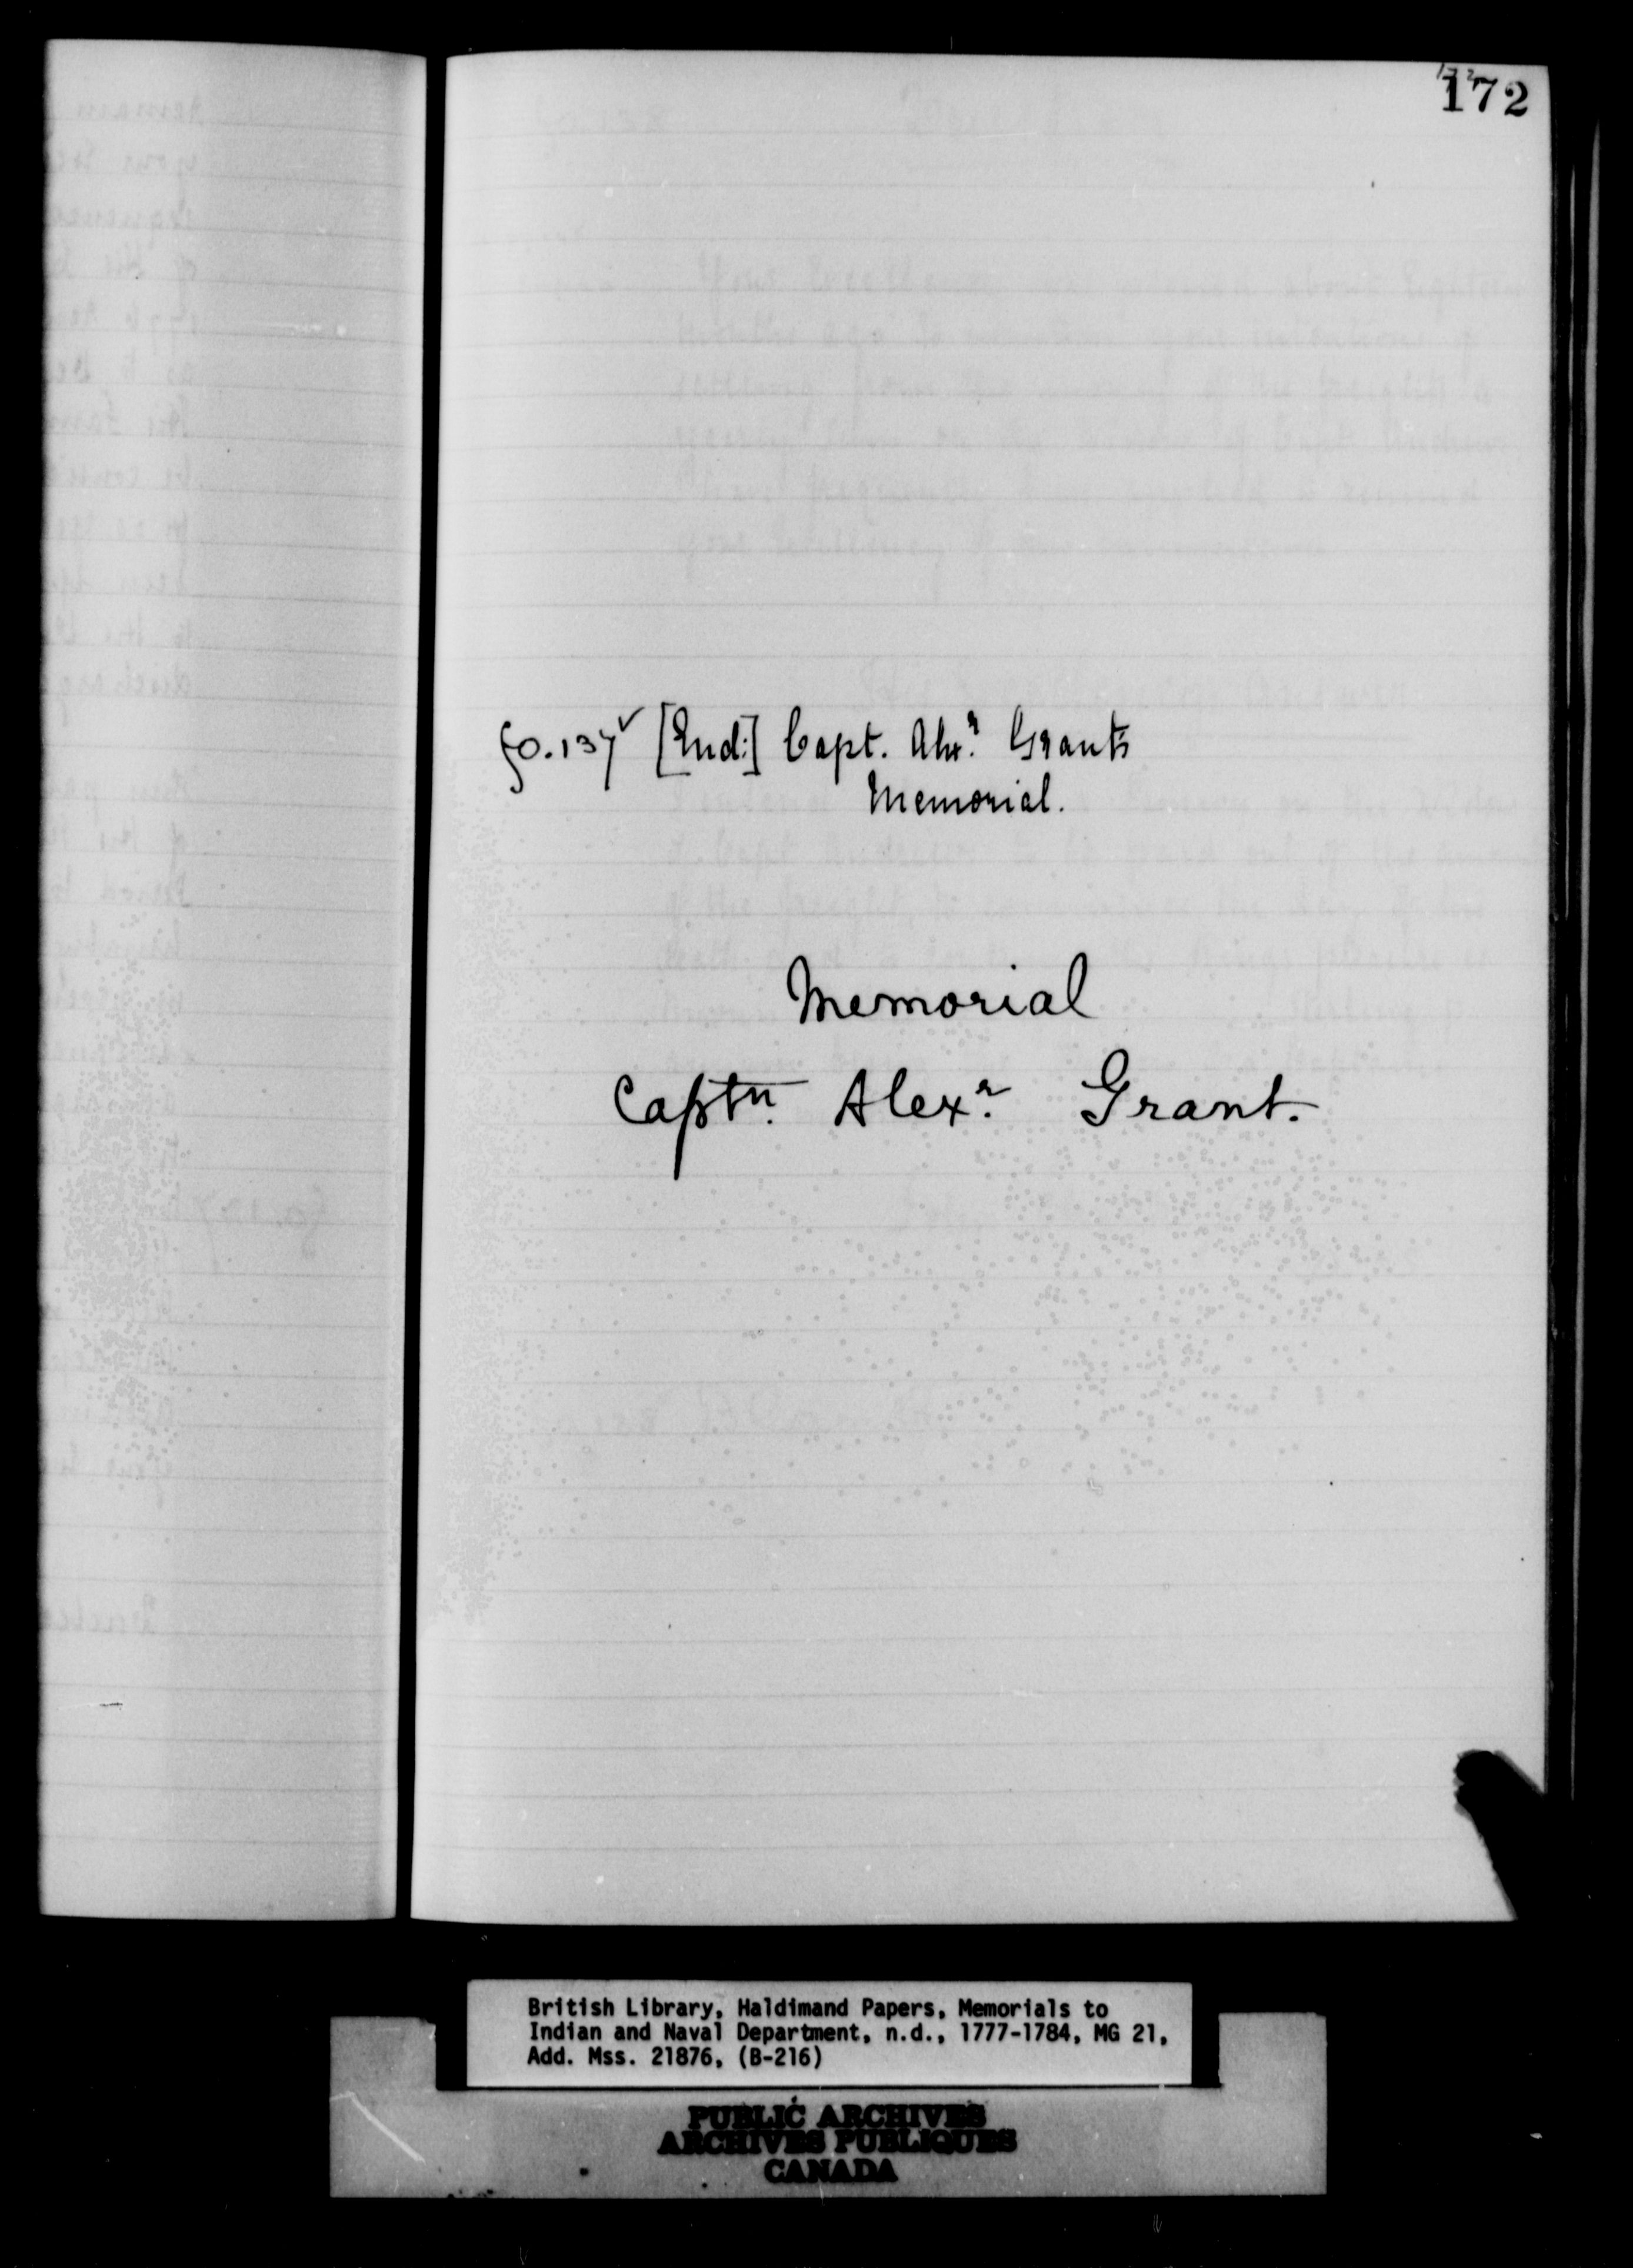 172
fo. 137v [End:] Capt. Alxr. Grants
Memorial.
Memorial
Captn. Alexr. Grant.
British Library, Haldimand Papers, Memorials to
Indian and Naval Department, n.d., 1777-1784, MG 21,
Add. Mss. 21876, (B-216)
PUBLIC ARCHIVES
ARCHIVES PUBLIQUES
CANADA